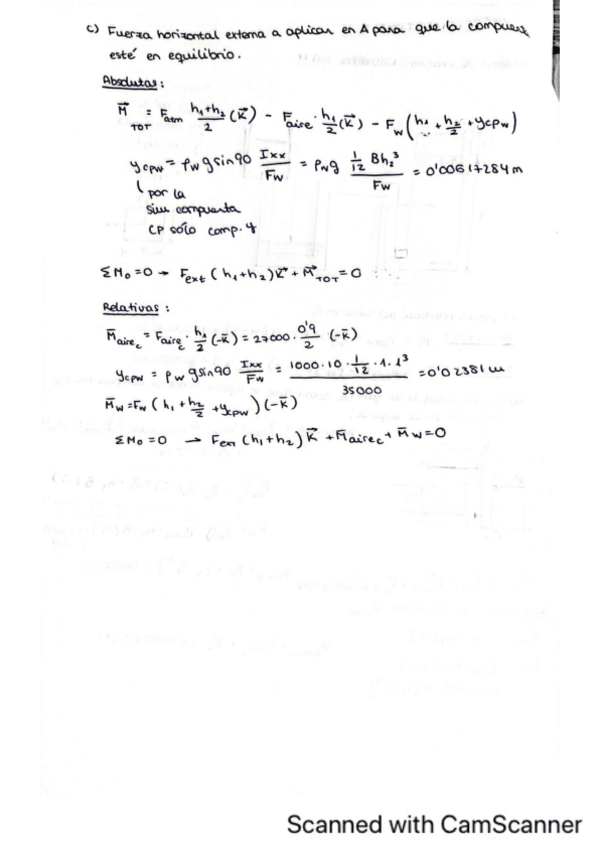 c) Fuerza horizontal externa a aplicar en A para que la compuert
esté en equilibrio.
Absolutas:
M⃗TOT = Fatm (h₁+h₂)/2 (K⃗) - Faire · h₁/2 (K⃗) - Fw (h₁ + h₂/2 + ycpw)
ycpw = ρw g sin90 Ixx/Fw = ρw g (1/12 B h₂³)/Fw = 0'00617284 m
por la
sim compuerta
CP sólo comp. y
ΣMo = 0 → Fext (h₁+h₂) K⃗ + M⃗TOT = 0
Relativas:
M̄airec = Fairec · h₁/2 (-k̄) = 27000 · 0'9/2 (-k̄)
ycpw = ρw g sin90 Ixx/Fw = (1000 · 10 · 1/12 · 1 · 1³)/35000 = 0'02381 m
M̄w = Fw (h₁ + h₂/2 + ycpw) (-k̄)
ΣMo = 0 → Fext (h₁+h₂) K⃗ + M̄airec + M̄w = 0
Scanned with CamScanner